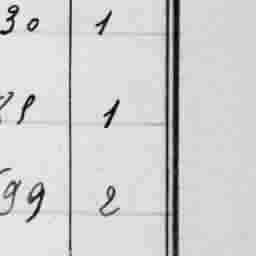 30 1
1
99 2